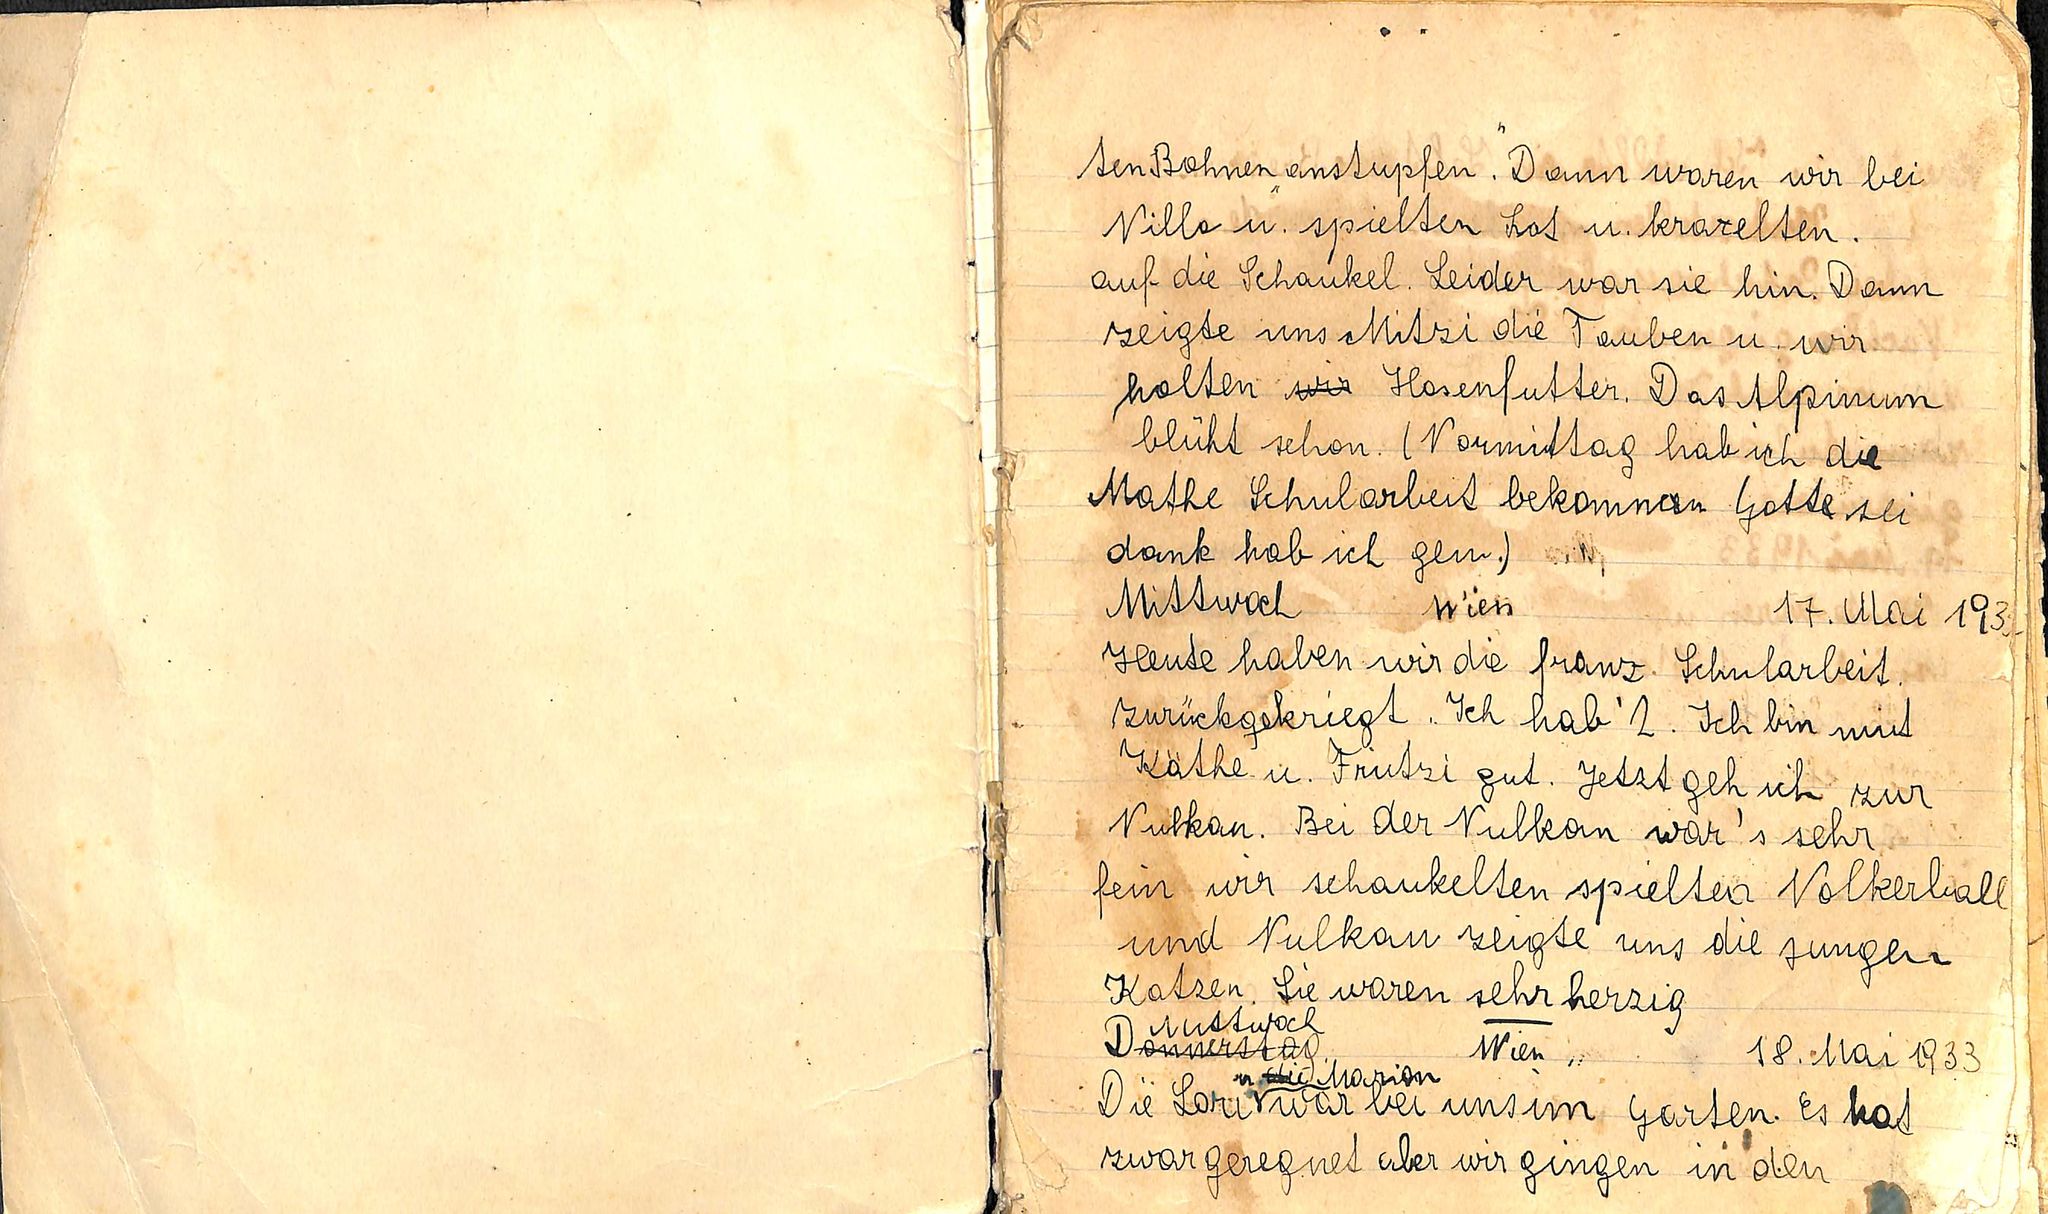 ten Bohnen "anstupfen". Dann waren wir bei
Villa u. spielten Lot u. kraxelten.
auf die Schaukel. Leider war sie hin. Dann
zeigte uns Mitzi die Tauben u. wir
holten wir Hasenfutter. Das Alpinum
blüht schon. (Vormittag hab ich die
Mathe Schularbeit bekommen Gotte sei
dank hab ich gen.)
Mittwoch Wien 17. Mai 193
Heute haben wir die franz. Schularbeit.
zurückgekriegt. Ich hab' 2. Ich bin mit
Käthe u. Frutzi gut. Jetzt geh ich zur
Vulkan. Bei der Vulkan war's sehr
fein wir schaukelten spielten Volkerball
und Vulkan zeigte uns die jungen
Katzen. Sie waren sehr herzig
Mittwoch
Donnerstag. Wien 18. Mai 1933
u. die Marion
Die Lori war bei uns im Garten. Es hat
zwar geregnet aber wir gingen in den